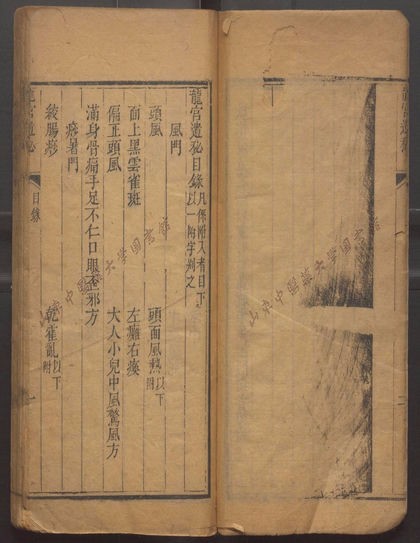 龍宮遺秘目錄凡係附入者目下以一附字別之
風門
頭風
頭面風熱以下附
面上黑雲雀斑
左癱右瘓
偏正頭風
大人小兒中風驚風方
滿身骨痛手足不仁口眼歪邪方
痧暑門
絞腸痧
乾霍亂以下附
龍宮遺秘
目錄
一
山東中醫藥大學圖書館
山東中醫藥大學圖書館